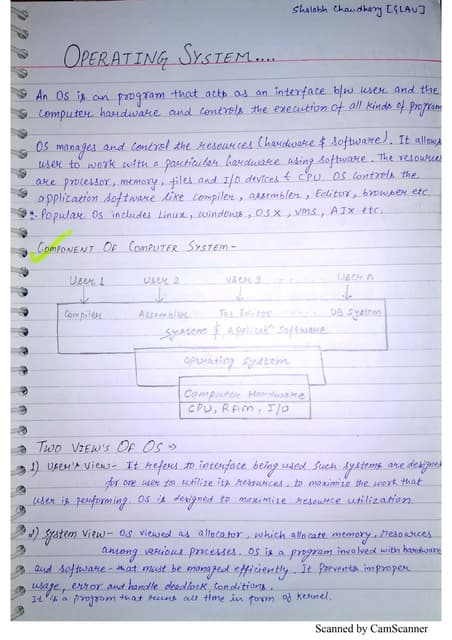 Sholabh Chaudhary [GLAU]
OPERATING SYSTEM....
An OS is an program that acts as an interface b/w user and the
computer hardware and controls the execution of all kinds of program
OS manages and control the resources (hardware & software). It allows
user to work with a particular hardware using software. The resources
are processor, memory, files and I/O devices & CPU. OS controls the
application software like compiler, assembler, Editor, browser etc
Popular OS includes Linux, windows, OS X, VMS, AIX etc.
COMPONENT OF COMPUTER SYSTEM -
User 1 User 2 User 3 .. User n
Compiler Assembler Text Editor .... DB System
System & Applicatn Software
Operating System
Computer Hardware
CPU, RAM, I/O
TWO VIEW'S OF OS ⇒
1) USER'S View - It refers to interface being used such systems are designed
for one user to utilize its resources. to maximize the work that
user is performing. OS is designed to maximize resource utilization
2) System View - OS viewed as allocator, which allocate memory, resources
among various processes. OS is a program involved with hardware
and software - that must be managed efficiently. It prevents improper
usage, error and handle deadlock conditions.
It is a program that runs all time in form of kernel.
Scanned by CamScanner